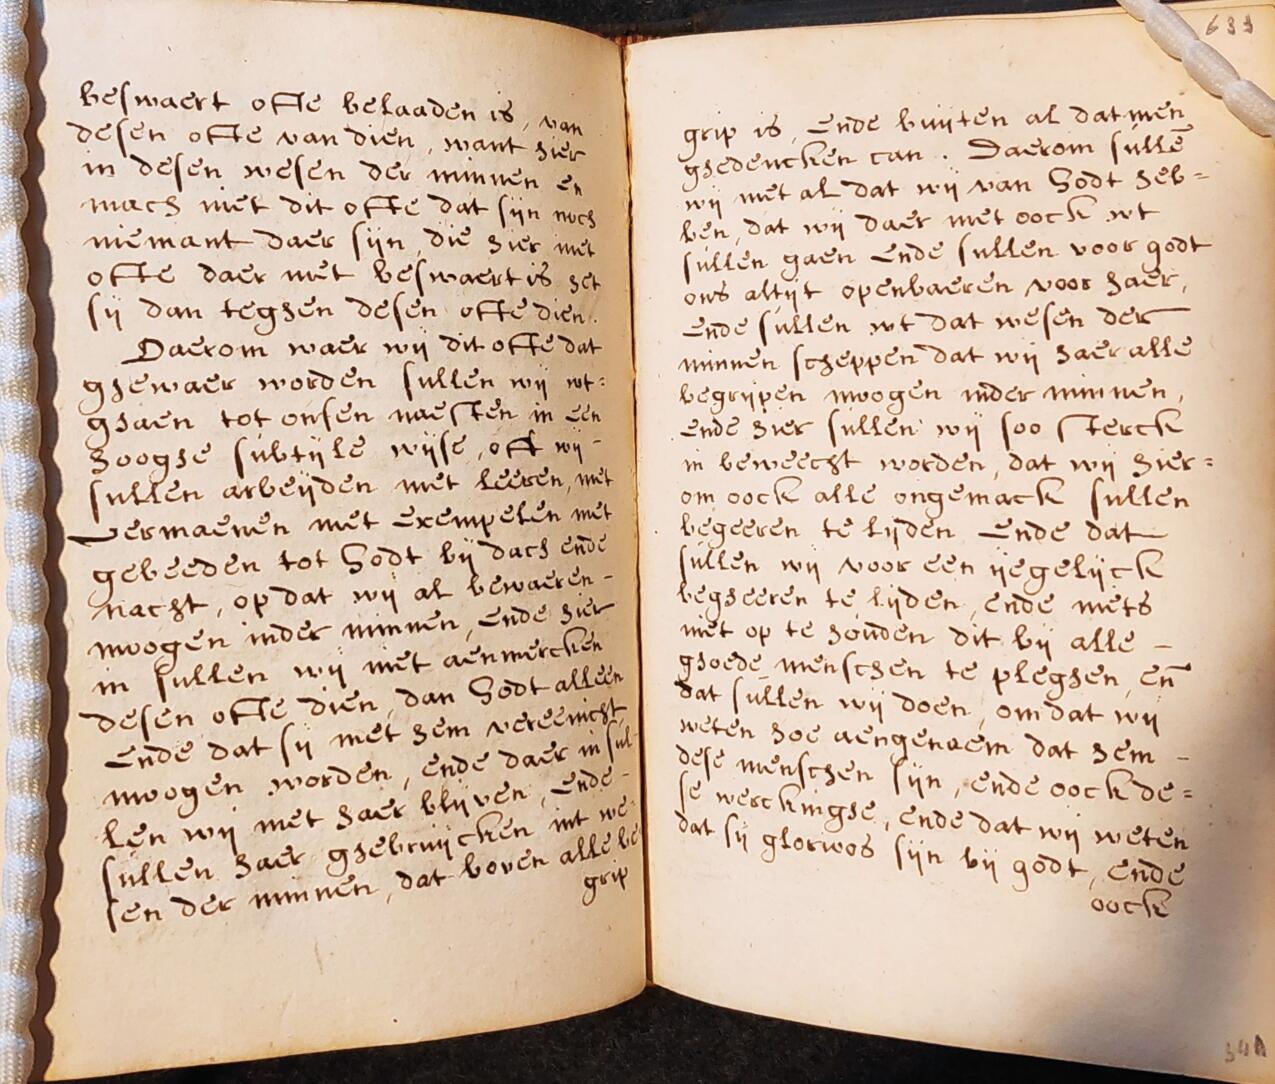 beswaert ofte belaaden is, van
desen ofte van dien, want hier
in desen wesen der minnen en
mach niet dit ofte dat sijn noch
niemant daer sijn, die hier met
ofte daer met beswaert is het
sij dan teghen desen ofte dien.
Daerom waer wij dit ofte dat
ghewaer worden sullen wij wt:
ghaen tot onsen naesten in een
hooghe subtijle wijse, oft wij -
sullen arbeijden met leeren, met
vermaenen met exempelen met
gebeeden tot Godt bij dach ende
nacht, op dat wij al bewaeren -
moogen inder minnen, Ende hier
in sullen wij niet aenmercken
desen ofte dien, dan Godt alleen
Ende dat sij met hem vereenicht
moogen worden, ende daer in sul-
len wij met haer blijven, Ende -
sullen haer ghebruijcken int we-
sen der minnen, dat boven alle be
grip
633
grip is, Ende buijten al datmen
ghedencken can. Daerom sullē
wij met al dat wij van Godt heb=
ben, dat wij daer met oock wt
sullen gaen Ende sullen voor godt
ons altijt openbaeren voor haer,
Ende sullen wt dat wesen der
minnen scheppen dat wij haer alle
begrijpen moogen inder minnen,
Ende hier sullen wij soo sterck
in beweecht worden, dat wij hier=
om oock alle ongemack sullen
begeeren te lijden Ende dat
sullen wij voor een ijegelijck
begheeren te lijden, ende niets
niet op te houden dit bij alle -
ghoede menschen te pleghen, eñ
dat sullen wij doen, om dat wij
weten hoe aengenaem dat hem -
dese menschen sijn, ende oock de=
se werckinghe, ende dat wij weten
dat sij glorioos sijn bij godt, ende
oock